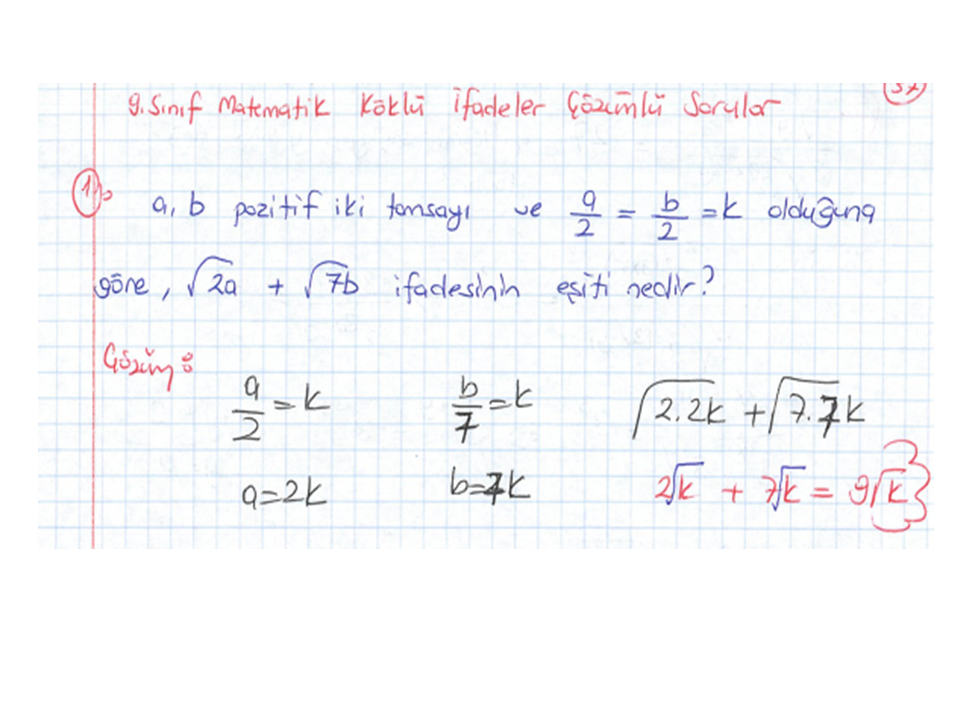 9. Sınıf Matematik Köklü İfadeler Çözümlü Sorular
1) a, b pozitif iki tamsayı ve a/2 = b/2 = k olduğuna
göre, √2a + √7b ifadesinin eşiti nedir?
Çözüm:
a/2 = k b/7 = k √2.2k + √7.7k
a=2k b=7k 2√k + 7√k = 9√k